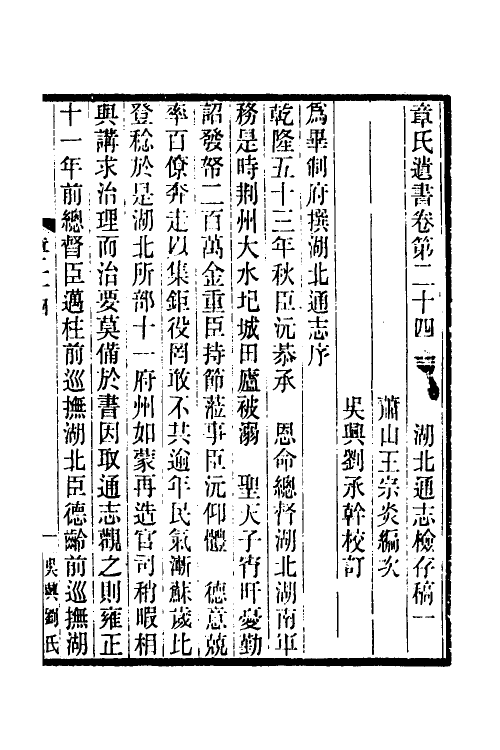 章氏遺書卷第二十四　湖北通志檢存稿一
蕭山王宗炎編次
吳興劉承幹校訂
爲畢制府撰湖北通志序
乾隆五十三年秋臣沅恭承　恩命總督湖北湖南軍
務是時荆州大水圮城田廬被溺　聖天子宵旰憂勤
詔發帑二百萬金重臣持節蒞事臣沅仰體　德意兢
率百僚奔走以集鉅役罔敢不共逾年民氣漸蘇歲比
登稔於是湖北所部十一府州如蒙再造官司稍暇相
與講求治理而治要莫備於書因取通志觀之則雍正
十一年前總督臣邁柱前巡撫湖北臣德齡前巡撫湖
一
吳興劉氏